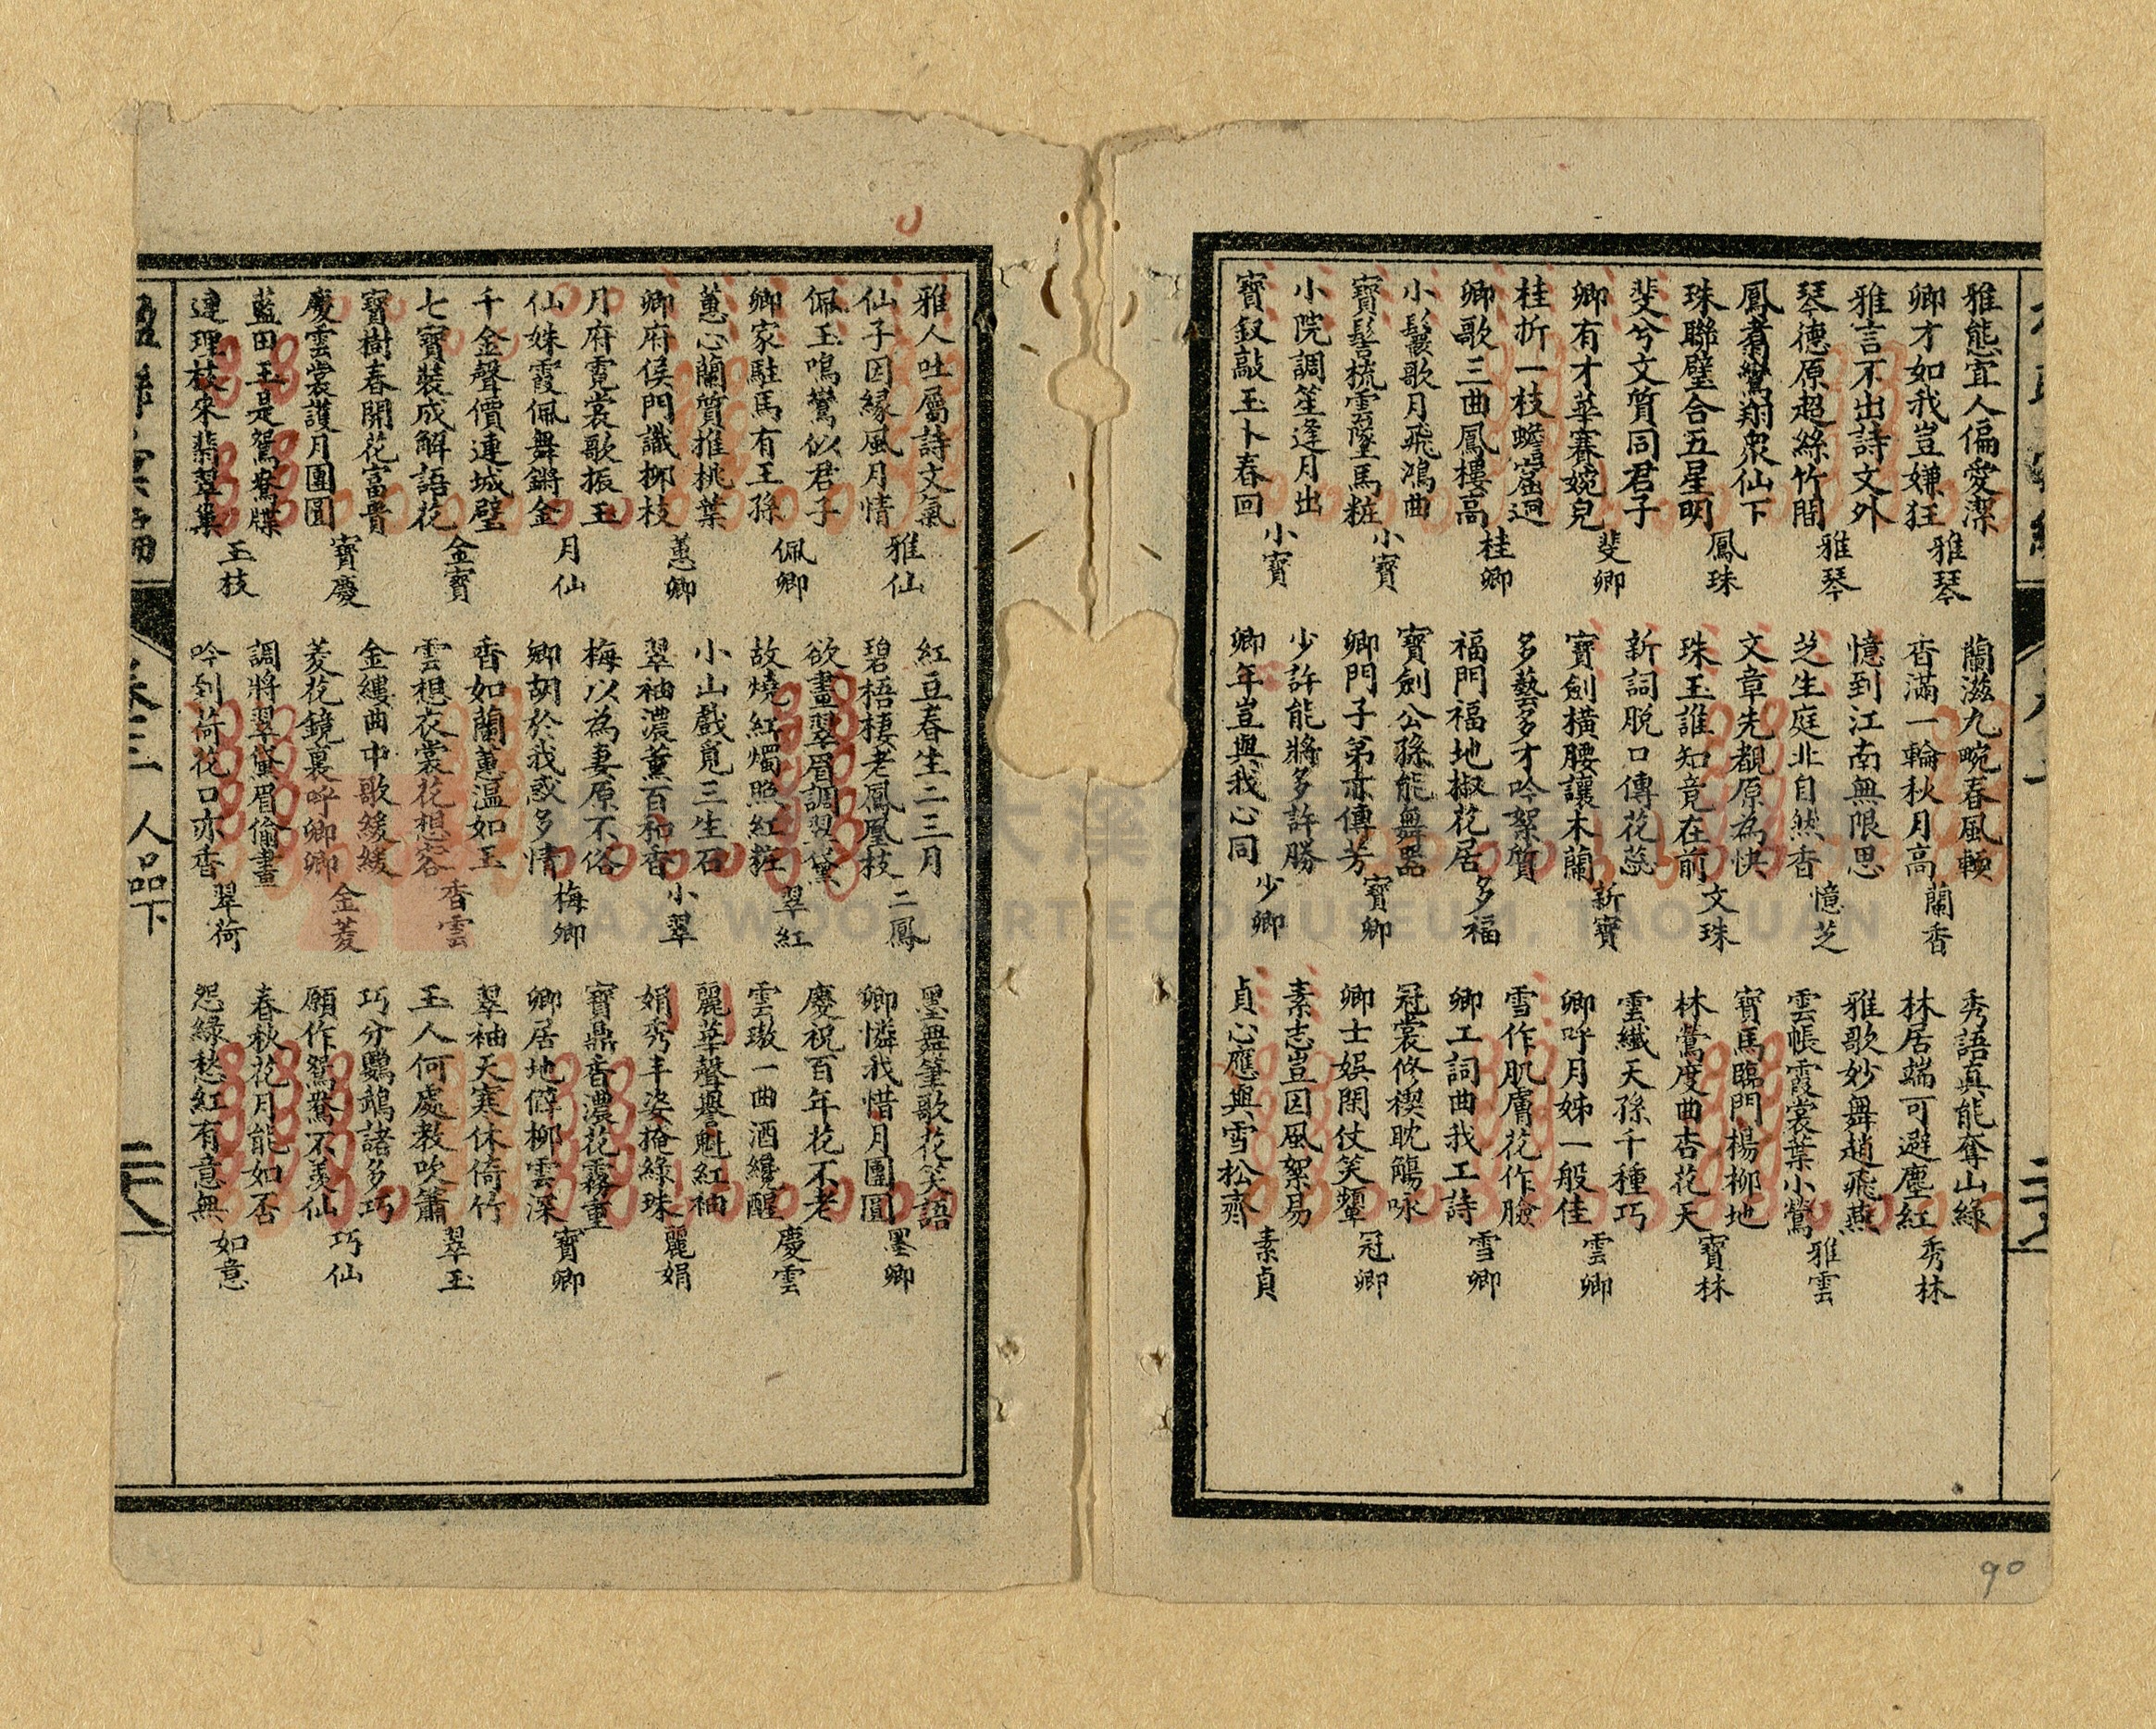 雅態宜人偏愛潔
卿才如我豈嫌狂 雅琴
雅言不出詩文外
琴德原超絲竹間 雅琴
鳳翥鸞翔衆仙下
珠聯璧合五星明 鳳珠
斐兮文質同君子
卿有才華賽婉兒 斐卿
桂折一枝蟾窟迥
卿歌三曲鳳樓高 桂卿
小鬟歌月飛鴻曲
寶髻梳雲墜馬粧 小寶
小院調笙逢月出
寶釵敲玉卜春回 小寶
蘭滋九畹春風暖
香滿一輪秋月高 蘭香
憶到江南無限思
芝生庭北自然香 憶芝
文章先覩原為快
珠玉誰知竟在前 文珠
新詞脫口傳花蕊
寶劍橫腰讓木蘭 新寶
多藝多才吟絮質
福門福地椒花居 多福
寶劍公孫能舞器
卿門子弟亦傳芳 寶卿
少許能將多許勝
卿年豈與我心同 少卿
秀語真能奪山綠
林居端可避塵紅 秀林
雅歌妙舞趙飛燕
雲帳霞裳葉小鶯 雅雲
寶馬臨門楊柳地
林鶯度曲杏花天 寶林
雲纖天孫千種巧
卿呼月姊一般佳 雲卿
雪作肌膚花作臉
卿工詞曲我工詩 雪卿
冠裳修禊耽觴咏
卿士娛閑仗笑顰 冠卿
素志豈因風絮易
貞心應與雪松齊 素貞
二八
90
雅人吐屬詩文氣
仙子因緣風月情 雅仙
佩玉鳴鸞似君子
卿家駐馬有王孫 佩卿
蕙心蘭質推桃葉
卿府侯門識柳枝 蕙卿
月府霓裳歌振玉
仙姝霞佩舞鏘金 月仙
千金聲價連城璧
七寶裝成解語花 金寶
寶樹春開花富貴
慶雲裳護月團圓 寶慶
藍田玉是鴛鴦牒
連理枝來翡翠巢 玉枝
紅豆春生二三月
碧梧棲老鳳凰枝 二鳳
欲畫翠眉調翠黛
故燒紅燭照紅粧 翠紅
小山戲覓三生石
翠袖濃薰百和香 小翠
梅以為妻原不俗
卿胡於我惑多情 梅卿
香如蘭蕙溫如玉
雲想衣裳花想容 香雲
金縷曲中歌緩緩
菱花鏡裏呼卿卿 金菱
調將翠黛眉偷畫
吟到荷花口亦香 翠荷
墨舞筆歌花笑語
卿憐我惜月團圓 墨卿
慶祝百年花不老
雲璈一曲酒纔醒 慶雲
麗華聲譽魁紅袖
娟秀丰姿掩綠珠 麗娟
寶鼎香濃花霧重
卿居地僻柳雲深 寶卿
翠袖天寒休倚竹
玉人何處教吹簫 翠玉
巧分鸚鵡諸多巧
願作鴛鴦不羨仙 巧仙
春秋花月能如否
怨綠愁紅有意無 如意
卷三 人品下
二八